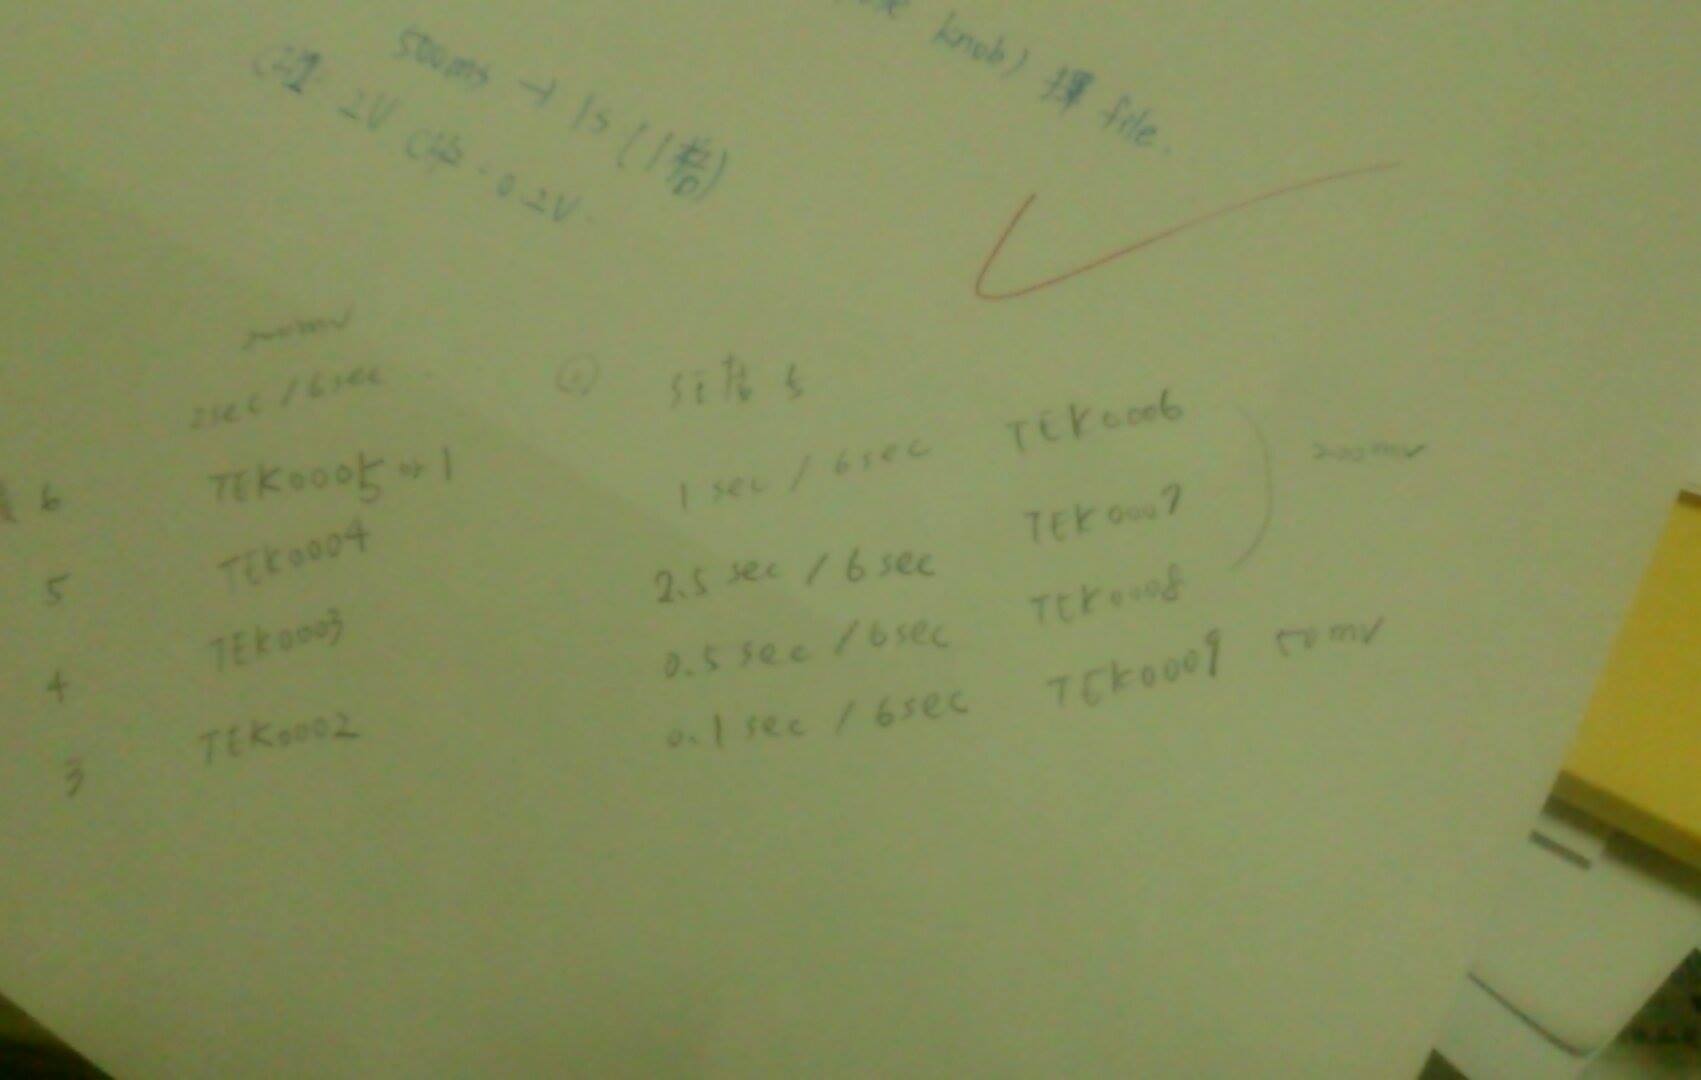 knob) 擇 file.
500ms → 1s (1格)
2V 0.2V.
2sec / 6sec
6 TEK0005 or 1
5 TEK0004
4 TEK0003
3 TEK0002
1 sec / 6sec TEK0006 200mv
2.5 sec / 6 sec TEK0007
0.5 sec / 6sec TEK0008
0.1 sec / 6sec TEK0009 50mv